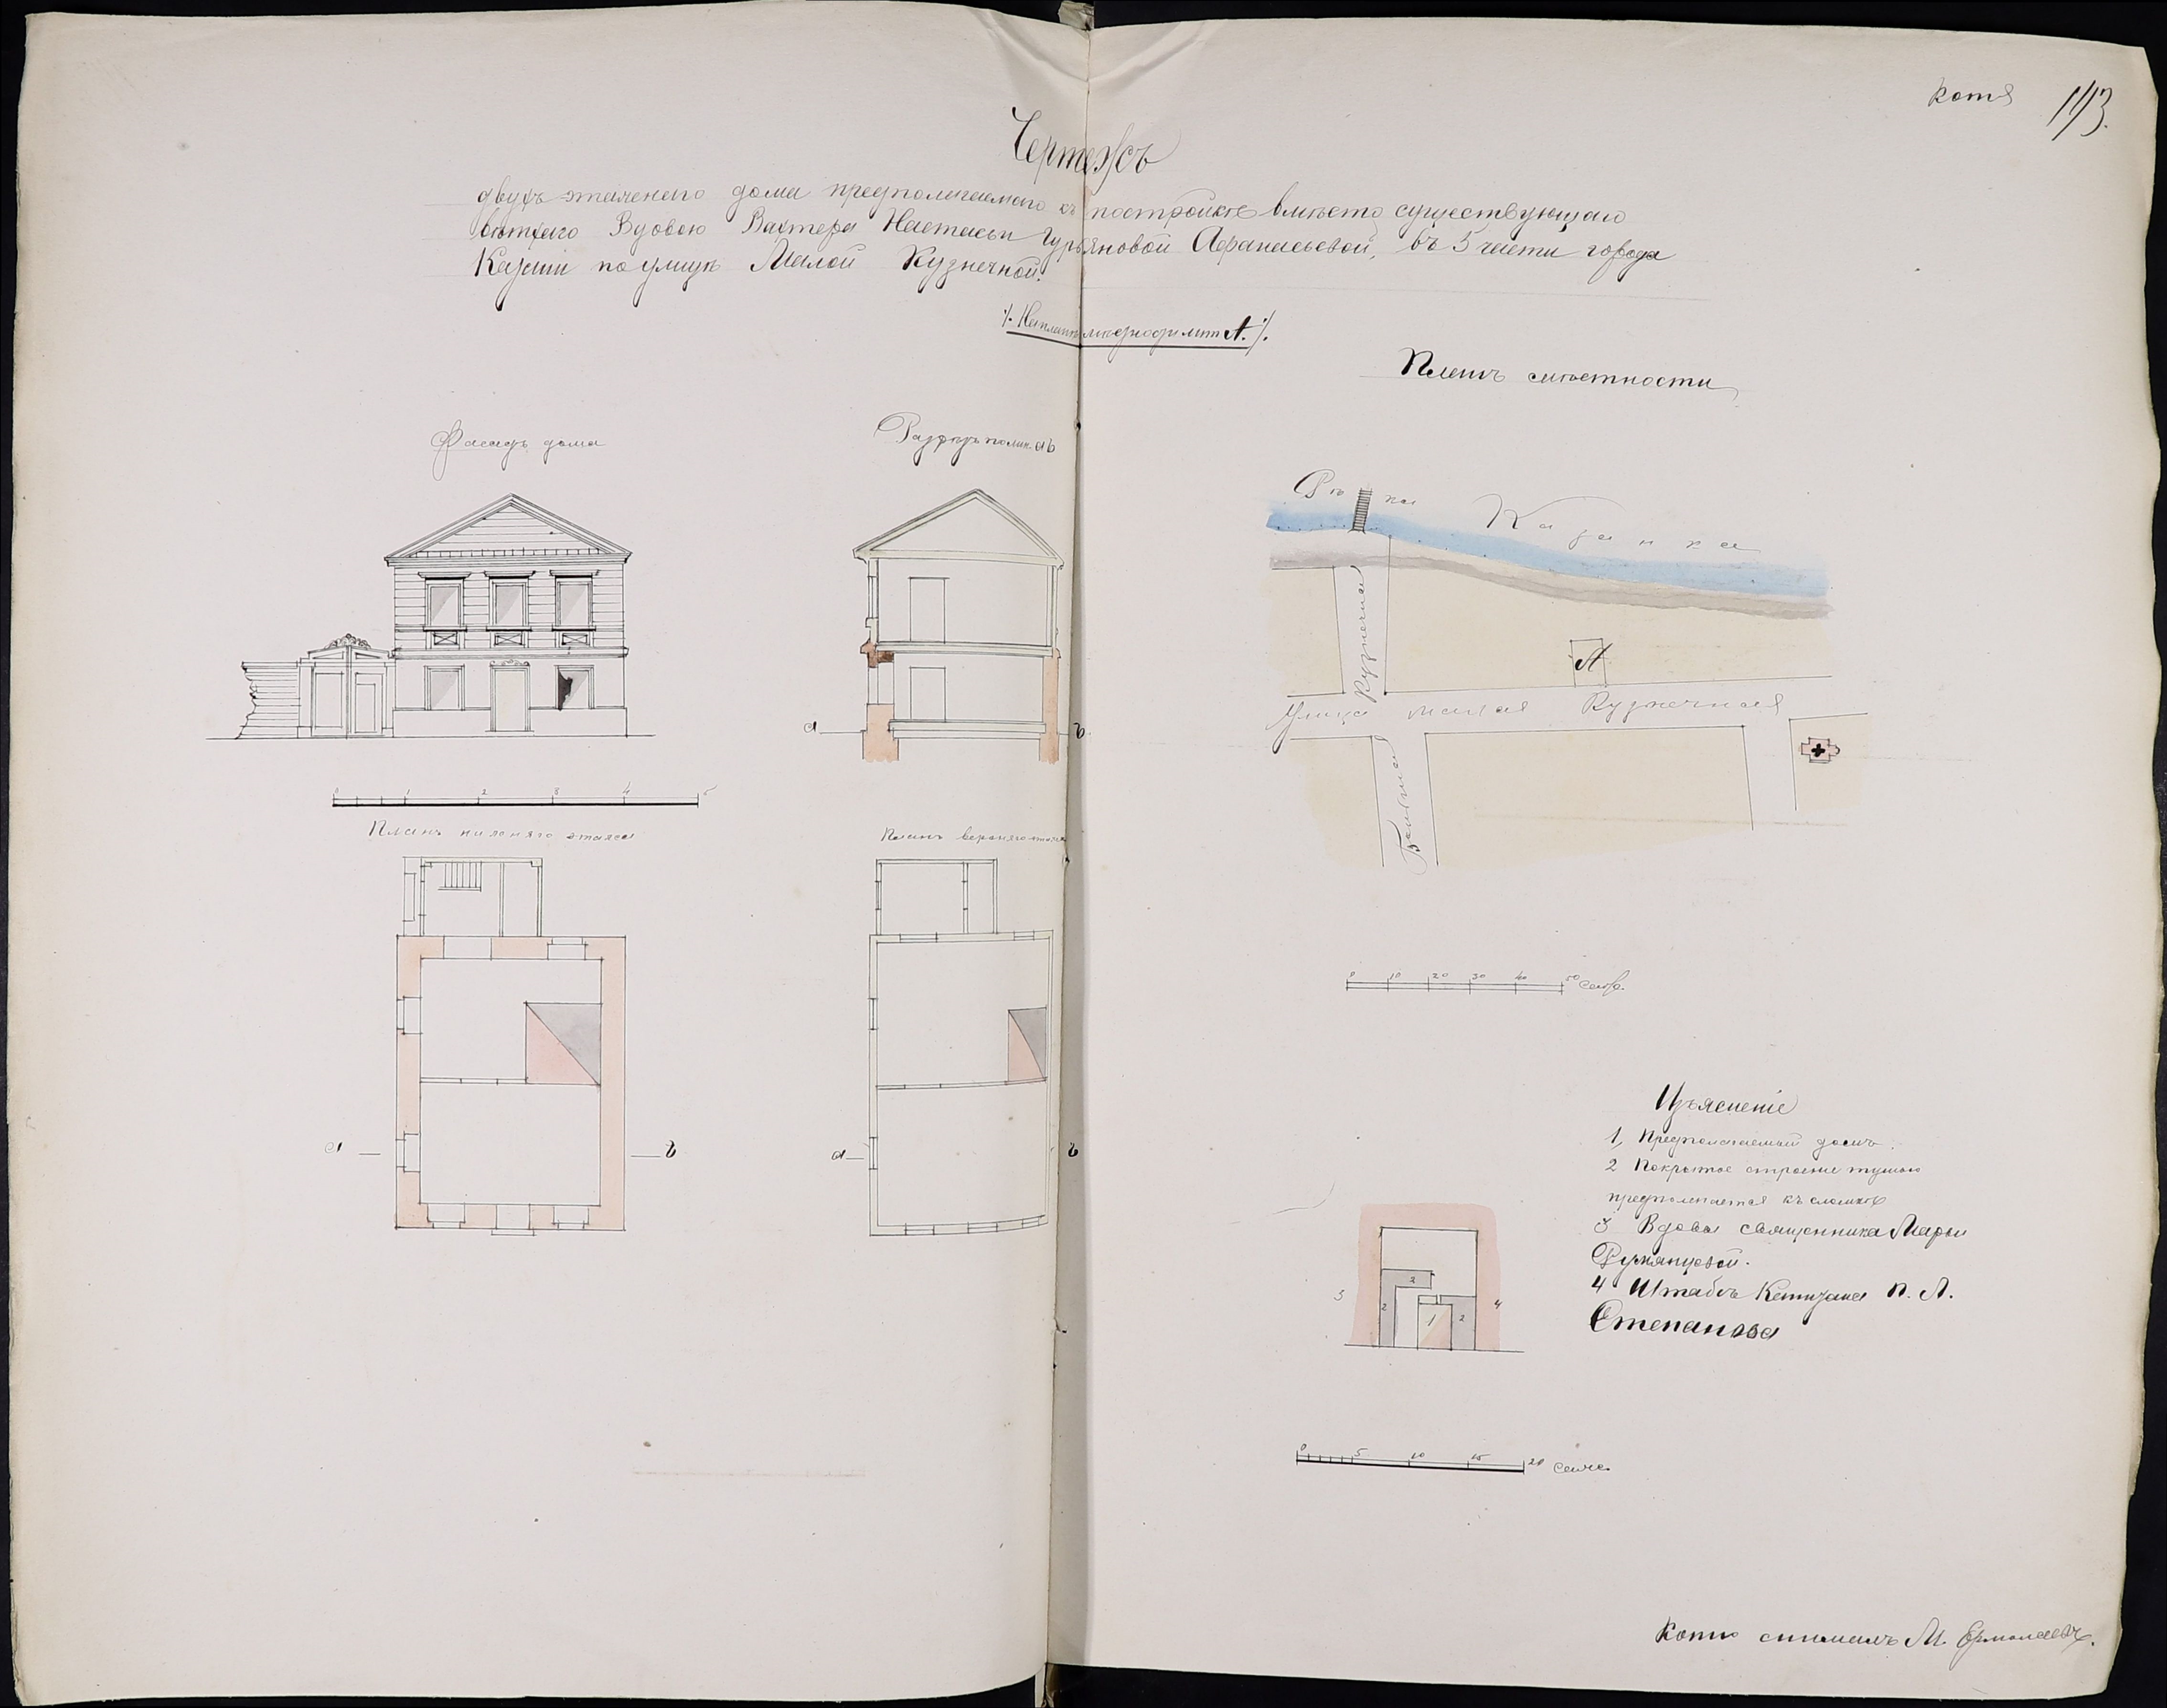 Копія 193.
Чертежъ
двухъ этажнаго дома предполагаемаго къ постройкѣ вмѣсто существующаго
ветхаго Вдовою Вахтера Настасьи Гурьяновой Афанасьевой, въ 5 части города
Казани по улицѣ Малой Кузнечной.
·/. На планѣ мѣстности лит А. ·/.
Планъ мѣстности
Фасадъ дома
Разрѣзъ по лин. аб
Рѣка Казанка
Кузнечная
А
Улица малая Кузнечная
Большая
а б
0 1 2 3 4 5
Планъ нижняго этажа
Планъ верхняго этажа
0 10 20 30 40 50 саж.
а б
а б
Изъясненіе
1, Предполагаемый домъ.
2 Покрытое строеніе тушью
предполагается къ сломкѣ
3 Вдова священника Марьи
Румянцевой.
4 Штабъ Капитана П. А.
Степанова
3 2 2 1 2 4
0 5 10 15 20 саже.
Копію снималъ М. Ермолаевъ.